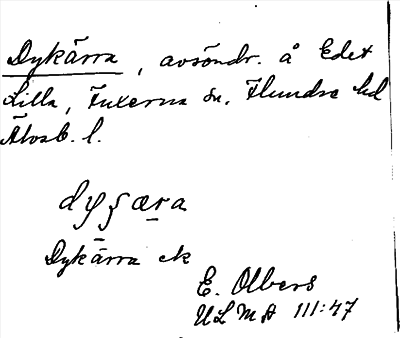 Dykärra, avsöndr. å Edet
Lilla, Fuxerna sn. Flundre hd
Älvsb. l.
Dykärra ck
E. Olbers
ULMA 111:47